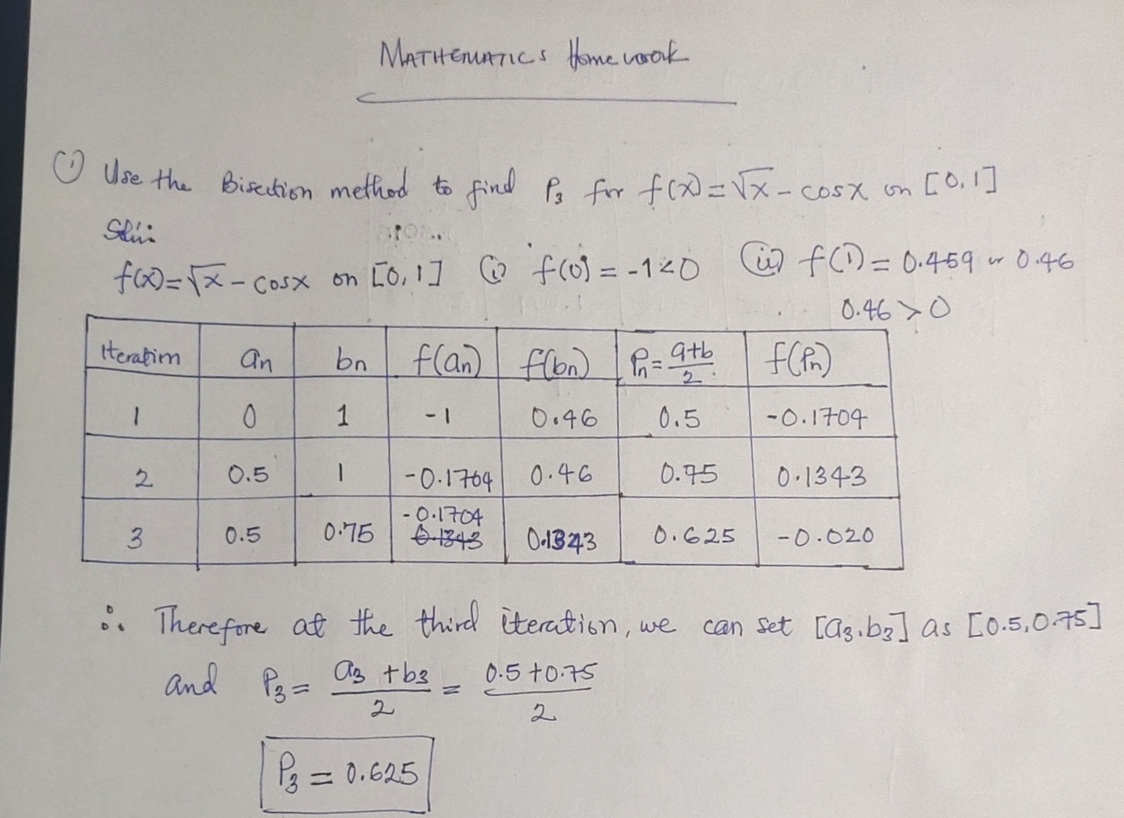 MATHEMATICS Homework
(1) Use the Bisection method to find P₃ for f(x) = √x - cosx on [0,1]
Soln:
f(x) = √x - cosx on [0,1] (i) f(0) = -1 < 0 (ii) f(1) = 0.459 or 0.46
0.46 > 0
Iteration an bn f(an) f(bn) Pn = a+b/2 f(Pn)
1 0 1 -1 0.46 0.5 -0.1704
2 0.5 1 -0.1704 0.46 0.75 0.1343
3 0.5 0.75 -0.1704 0.1343 0.625 -0.020
∴ Therefore at the third iteration, we can set [a₃.b₃] as [0.5,0.75]
and P₃ = a₃ + b₃/2 = 0.5 + 0.75/2
P₃ = 0.625